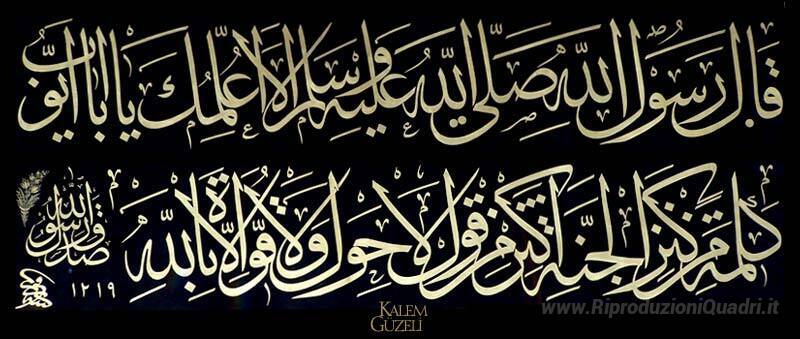 قال رسول الله صلى الله عليه وسلم ألا أعلمك يا أبا أيوب
كلمة من كنز الجنة أكثر من قول لا حول ولا قوة إلا بالله
صدق رسول الله
١٢١٩
KALEM GÜZELİ
www.RiproduzioniQuadri.it